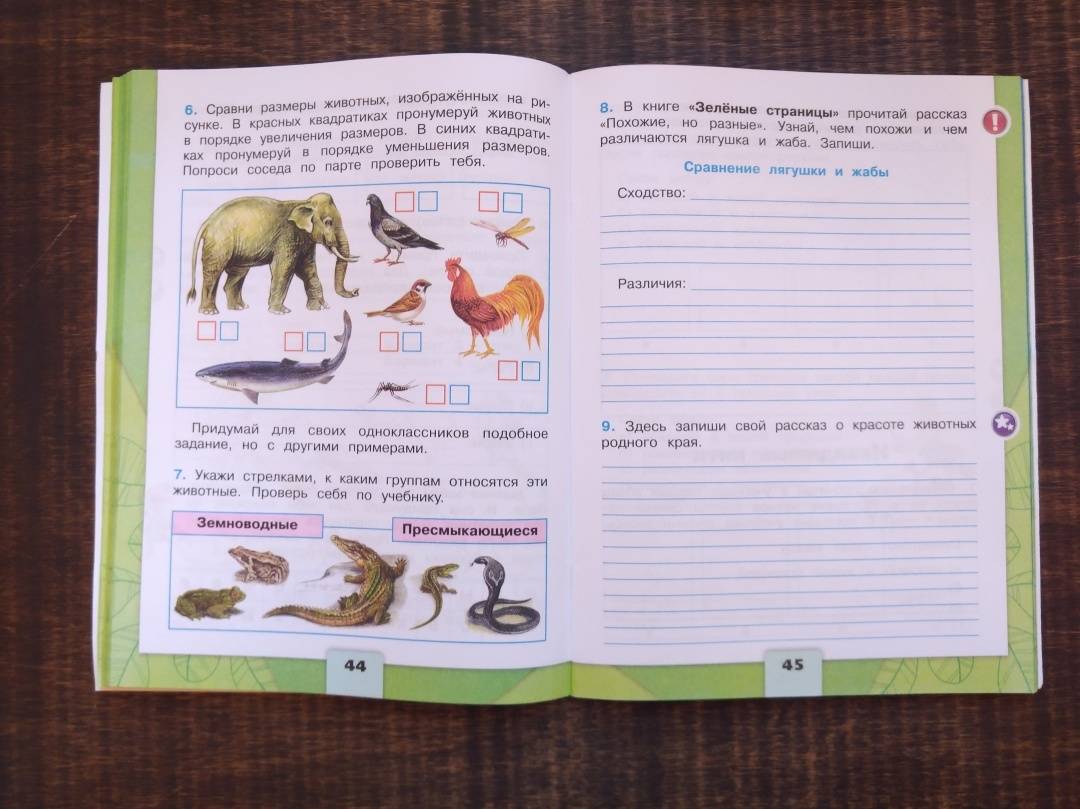 6. Сравни размеры животных, изображённых на ри-
сунке. В красных квадратиках пронумеруй животных
в порядке увеличения размеров. В синих квадрати-
ках пронумеруй в порядке уменьшения размеров.
Попроси соседа по парте проверить тебя.
Придумай для своих одноклассников подобное
задание, но с другими примерами.
7. Укажи стрелками, к каким группам относятся эти
животные. Проверь себя по учебнику.
Земноводные
Пресмыкающиеся
44
8. В книге «Зелёные страницы» прочитай рассказ
«Похожие, но разные». Узнай, чем похожи и чем
различаются лягушка и жаба. Запиши.
!
Сравнение лягушки и жабы
Сходство:
Различия:
9. Здесь запиши свой рассказ о красоте животных
родного края.
45